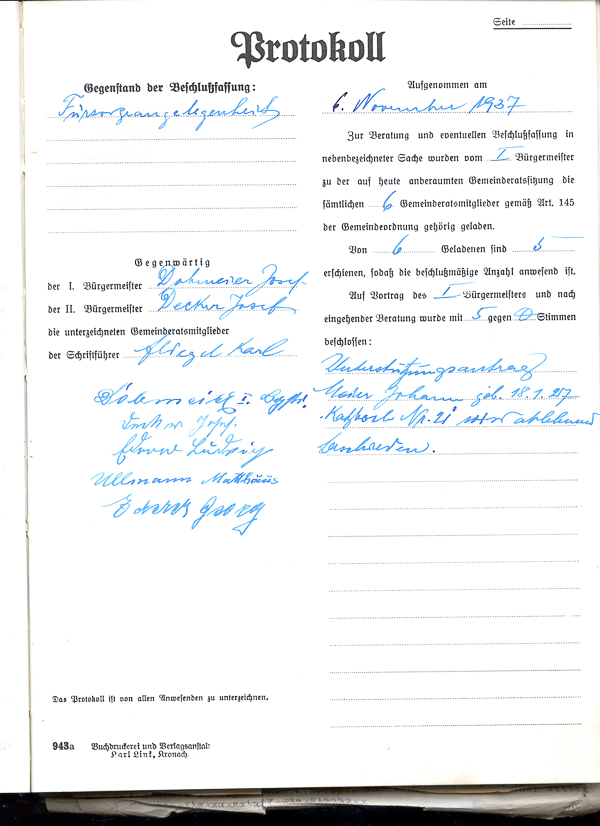 Seite
Protokoll
Gegenstand der Beschlußfassung:
Fürsorgeangelegenheit
Gegenwärtig
der I. Bürgermeister Dohmeier Josef
der II. Bürgermeister Decker Josef
die unterzeichneten Gemeinderatsmitglieder
der Schriftführer Fliegel Karl
I. Bgstr.
Decker Josef.
Ludwig
Ullmann Matthäus
Georg
Das Protokoll ist von allen Anwesenden zu unterzeichnen.
943a Buchdruckerei und Verlagsanstalt
Karl Link, Kronach
Aufgenommen am
6. November 1937
Zur Beratung und eventuellen Beschlußfassung in
nebenbezeichneter Sache wurden vom I Bürgermeister
zu der auf heute anberaumten Gemeinderatssitzung die
sämtlichen 6 Gemeinderatsmitglieder gemäß Art. 145
der Gemeindeordnung gehörig geladen.
Von 6 Geladenen sind 5
erschienen, sodaß die beschlußmäßige Anzahl anwesend ist.
Auf Vortrag des I Bürgermeisters und nach
eingehender Beratung wurde mit 5 gegen 0 Stimmen
beschlossen:
Unterstützungsantrag
Johann geb. 18.1.27
Nr. 21 wird ablehnend
beschieden.